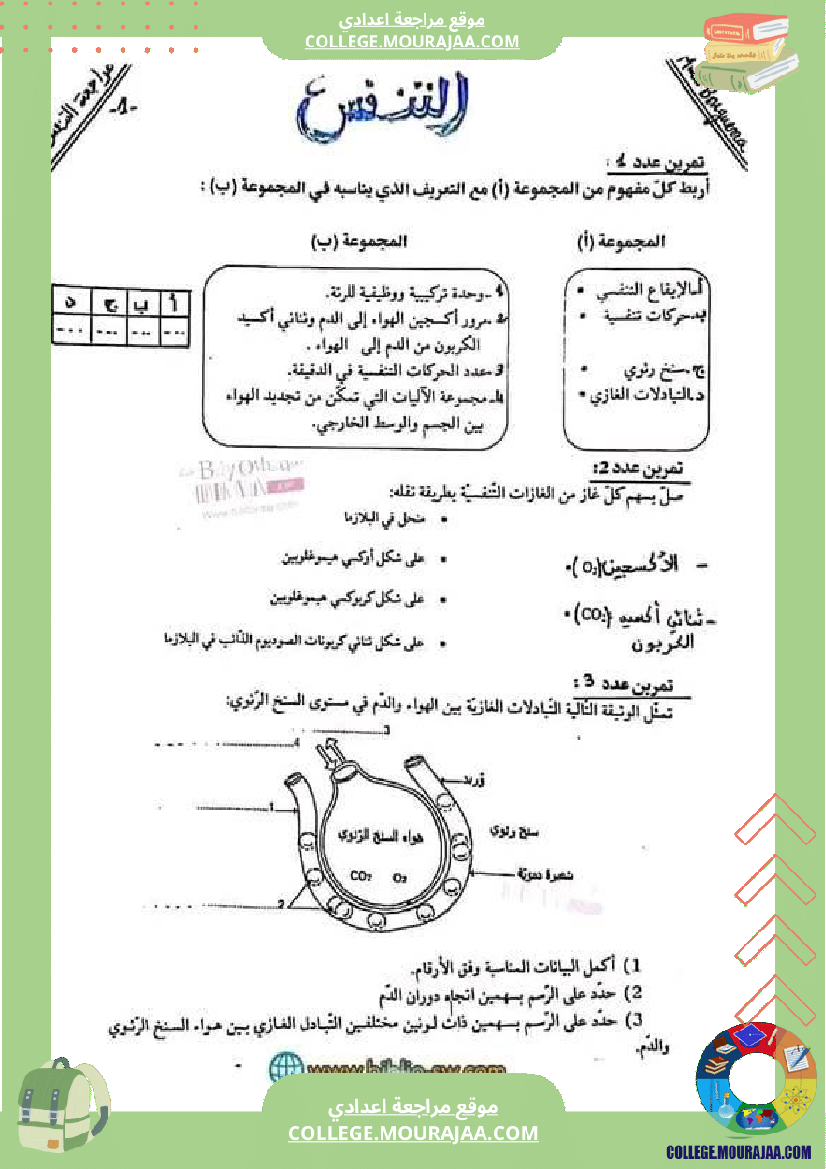 موقع مراجعة اعدادي
COLLEGE.MOURAJAA.COM
مراجعة
-1-
التنفس
تمرين عدد 1 :
أربط كلّ مفهوم من المجموعة (أ) مع التعريف الذي يناسبه في المجموعة (ب) :
المجموعة (أ)
أ-الإيقاع التنفسي •
ب-حركات تنفسية •
ج-سنخ رئوي •
د-التبادلات الغازي •
المجموعة (ب)
1-وحدة تركيبية ووظيفية للرئة.
2-مرور أكسجين الهواء إلى الدم وثنائي أكسيد
الكربون من الدم إلى الهواء .
3-عدد الحركات التنفسية في الدقيقة.
4-مجموعة الآليات التي تمكّن من تجديد الهواء
بين الجسم والوسط الخارجي.
أ ب ج د
--- --- --- ---
تمرين عدد 2:
صلّ بسهم كلّ غاز من الغازات التّنفسيّة بطريقة نقله:
• منحل في البلازما
• على شكل أوكسي هيموغلوبين
• على شكل كربوكسي هيموغلوبين
• على شكل ثنائي كربونات الصوديوم الذّائب في البلازما
- الأكسجين (O₂)•
- ثنائي أكسيد (CO₂)•
الكربون
تمرين عدد 3 :
تمثّل الوثيقة التّالية التّبادلات الغازيّة بين الهواء والدّم في مستوى السنخ الرّئوي:
3
4
وريد
1
هواء السنخ الرّئوي
سنخ رئوي
CO₂ O₂
شعيرة دمويّة
2
1) أكمل البيانات المناسبة وفق الأرقام.
2) حدّد على الرّسم بسهمين اتجاه دوران الدّم
3) حدّد على الرّسم بسهمين ذات لونين مختلفين التّبادل الغازي بين هواء السنخ الرّئوي
والدّم.
www.biblio-sw.com
موقع مراجعة اعدادي
COLLEGE.MOURAJAA.COM
COLLEGE.MOURAJAA.COM